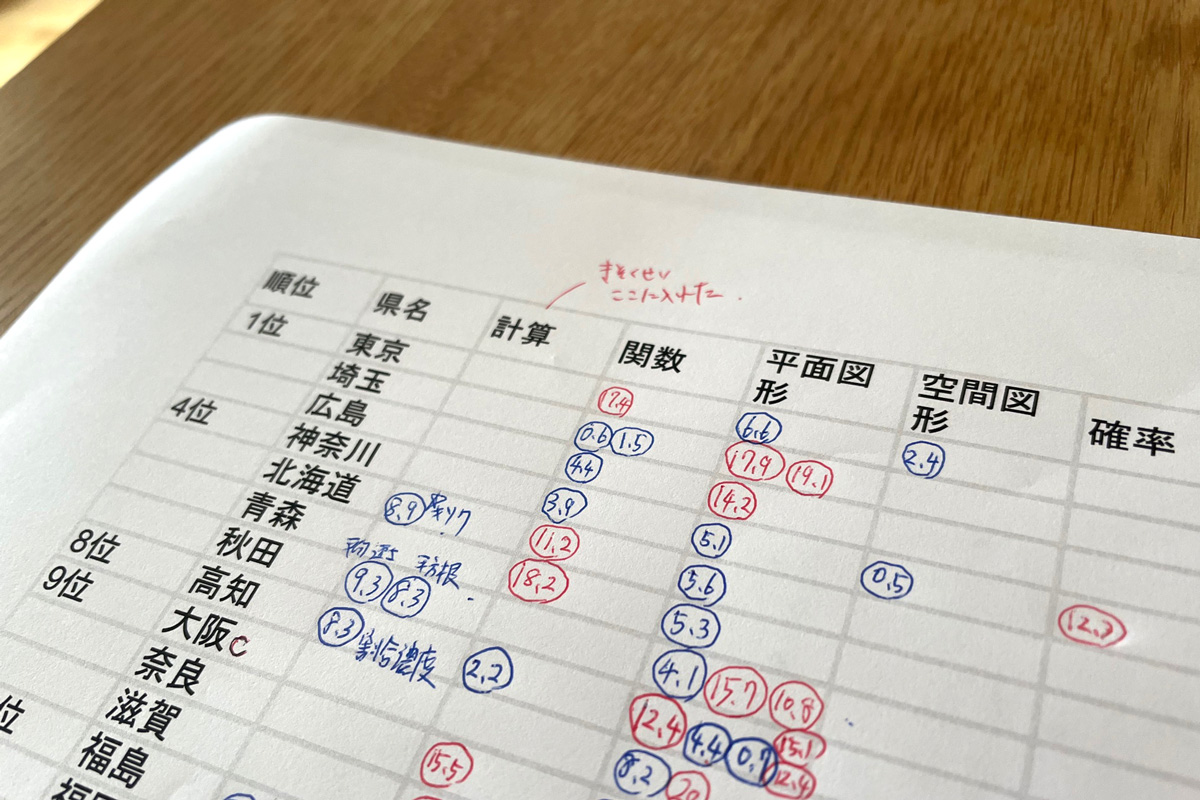 きそくせい
ここに入れた.
順位 県名 計算 関数 平面図形 空間図形 確率
1位 東京
埼玉 17.4 6.6
広島 0.6 1.5 17.9 19.1 2.4
4位 神奈川 4.4 14.2
北海道 8.9 3.9 5.1
青森 11.2 5.6 0.5
平方根
秋田 9.3 8.3 18.2 5.3 12.3
8位 高知 8.3 割合 濃度 2.2 4.1 15.7 10.8
9位 大阪C 12.4 4.4 0.7 15.1 12.4
奈良 8.2 20
滋賀 15.5
福島